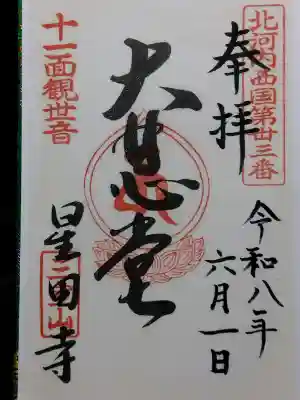 北河内西国第廿三番
奉拝
令和八年
六月一日
大悲堂
十一面観世音
星田寺